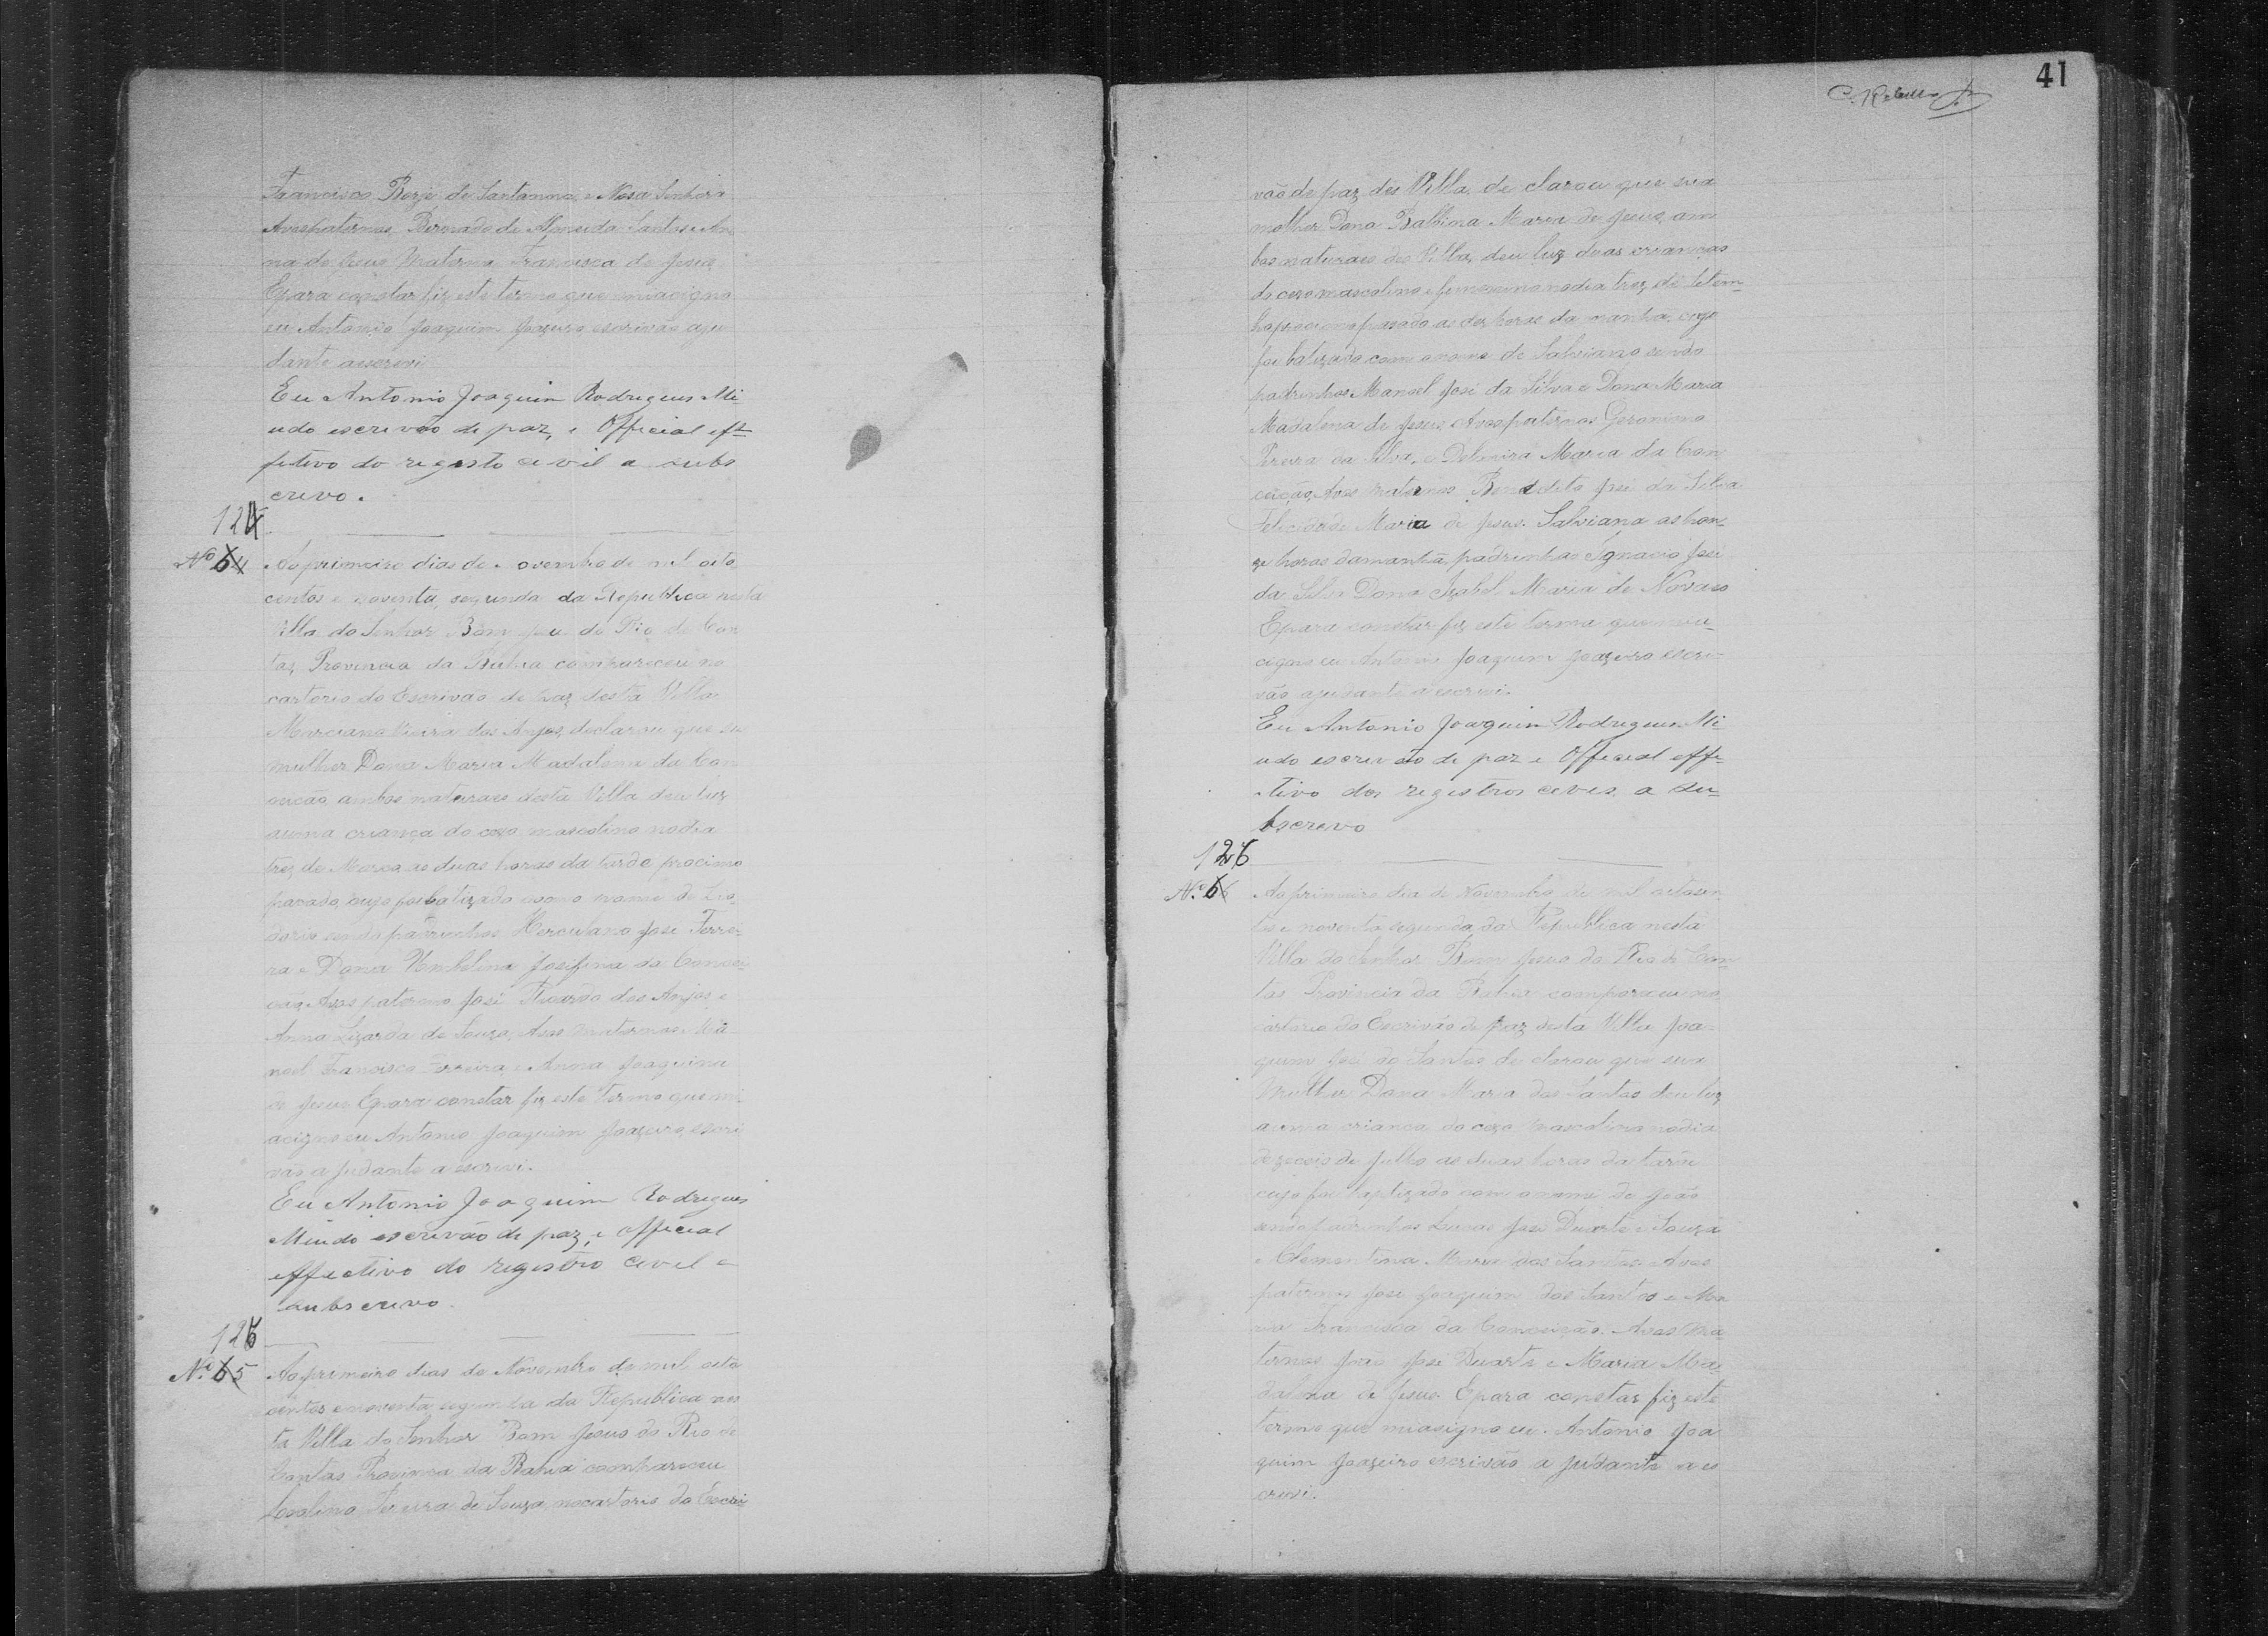 Francisco Borje de Santanna, e Nosa Senhora
Avospaternos Bernado de Almeida Santos e An
na de Jesus Materna Francisca de Jesus
Epara constar fiz este termo que miacigno
eu Antonio Joaquim Joazeiro escrivão aju
dante aescrevi
Eu Antonio Joaquim Rodrigues Mi
udo escrevão de paz, e Official eff
fetivo do registo civil a subs
crevo.
124
No 64
Ao primeiro dias de Novembro de mil oito
centos e noventa, segunda da Republica nesta
Villa do Senhor Bom Jesus do Rio de Con
tas, Provincia da Bahia compareceu no
cartorio do Escrivão de paz desta Villa
Marciano Vieira dos Anjos, declarou que su
mulher Dona Maria Madalena da Con
ceicão, ambos naturaes desta Villa deu luz
auma criança do cexo mascolino nodia
trez de Março as duas horas da tarde procimo
pasado, cujo foi batizado como nome de Leo
dorio sendo padrinhos Herculano José Ferrei
ra e Dona Umbelina Josifina da Concei
cão, Avos paterno José Ricardo dos Anjos e
Anna Lizarda de Souza, Avos maternos Ma
noel Francisco Ferreira e Anna Joaquina
de Jesus Epara constar fiz este Termo que mi
acigno eu Antonio Joaquim Joazeiro, escri
vão ajudante a escrevi.
Eu Antonio Joaquim Rodrigues
Miudo escrivão de paz, e official
effectivo do registro civel a
subscrevo.
125
No. 65
Ao primeiro dias de Novembro de mil oito
centos e noventa segunda da Republica nes
ta Villa do Senhor Bom Jesus do Rio de
Contas Provincia da Bahia compareceu
Pereira de Souza nocartorio do Escri
41
vão de paz des Villa, de clarou que sua
molher Dona Balbina Maria de Jesus, am
bos naturaes des Villa, deu luz duas crianças
do cexo mascolino e femenino nodia trez de Setem
bo procimo pasado as dez horas da manha, cujo
foi batizado com o nome de Salviano sendo
padrinhos Manoel José da Silva e Dona Maria
Madalena de Jesus, Avos paternos Geronimo
Pereira da Silva, e Maria da Con
ceição, Avos maternos Benedito José da Silva
Felicidade Maria de Jesus. Salviana as hon
ze horas damanhã, padrinhos Ignacio José
da Silva Dona Izabel Maria de Novaes
Epara constar fiz este termo que miu
cigno eu Antonio Joaquim Joazeiro escri
vão ajudante a escrevi.
Eu Antonio Joaquim Rodrigues Mi
udo escrevão de paz e Official effe
tivo dos registros civis a su
bscrevo
126
No. 66
Ao primeiro dia de Novembro de mil oitocen
tos e noventa segunda da Republica nesta
Villa do Senhor Bom Jesus do Rio de Con
tas Provincia da Bahia compareceu no
cartorio do Escrivão de paz desta Villa Joa
quim José do Santos de clarou que sua
Mulher Dona Maria dos Santos deu luz
a uma criança do cexo mascolino nodia
dezeceis de Julho as duas horas da tarde
cujo foi baptizado com o nome de João
sendo padrinhos Lucas José Duarte e Souza
e Clementina Maria dos Santos Avos
paternos José Joaquim dos Santos e Ma
ria Francisca da Conceição. Avos Ma
ternos João José Duarte e Maria Ma
dalena de Jesus Epara constar fiz este
termo que miasigno eu. Antonio Joa
quim Joazeiro escrivão a judante a es
crevi.